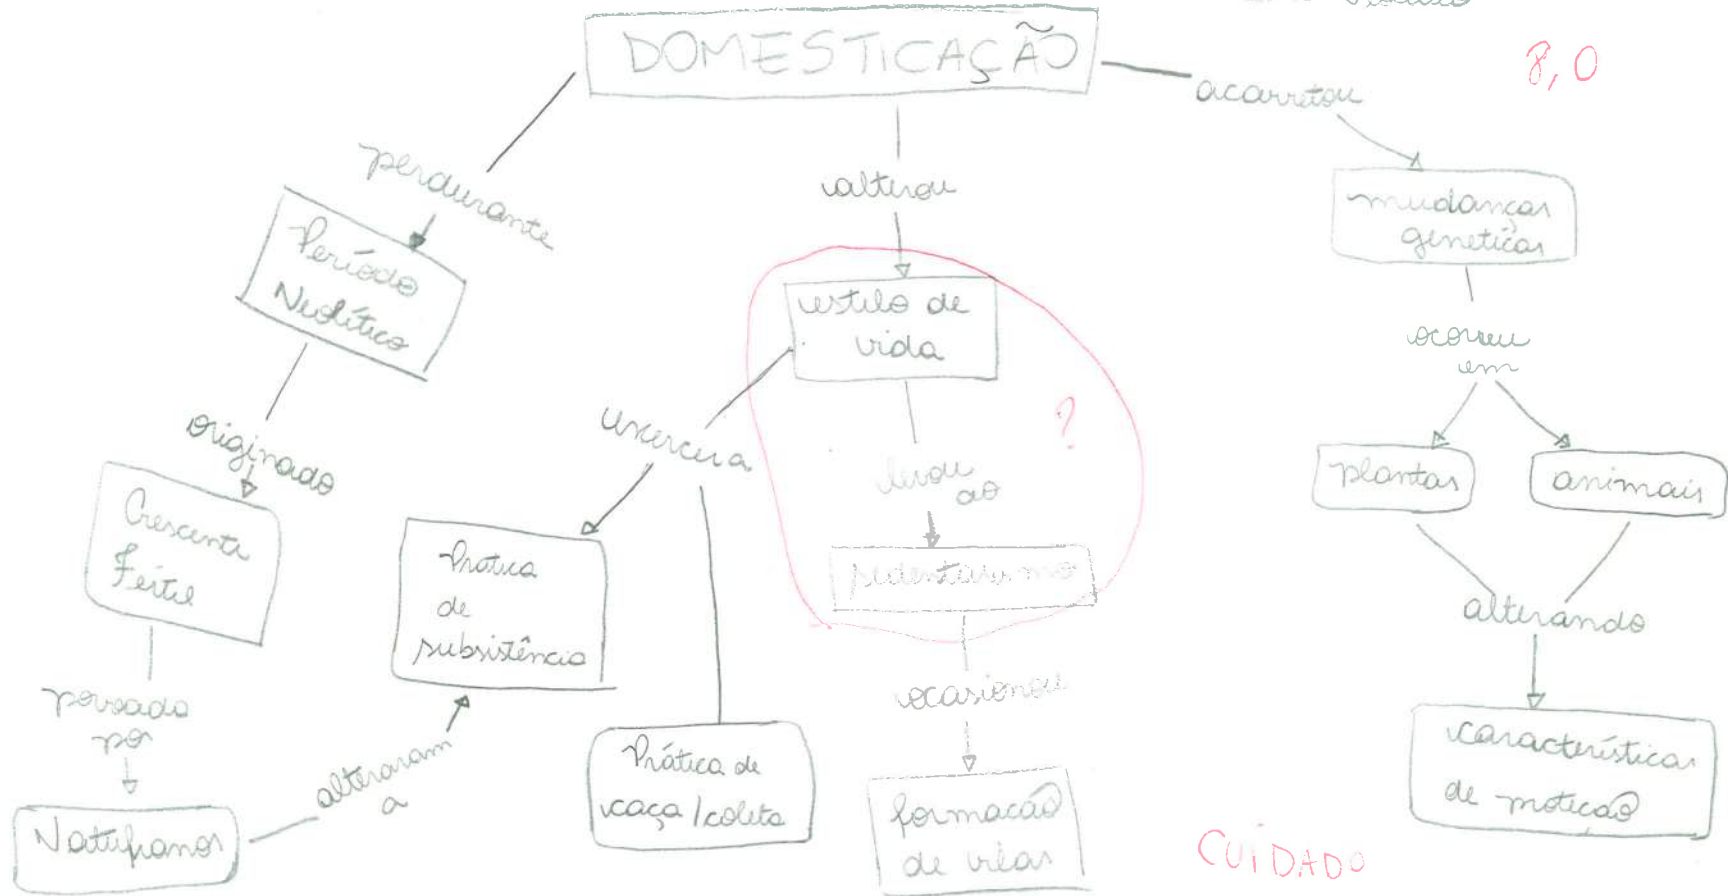 DOMESTICAÇÃO
8,0
perdurante
Período
Neolítico
originado
Crescente
Fértil
povoado
por
Natufianos
alteraram
a
alterou
estilo de
vida
?
exercer a
Prática
de
subsistência
Prática de
caça/coleta
levou
ao
sedentarismo
ocasionou
formação
de vilas
acarretou
mudanças
geneticas
ocorreu
em
plantas
animais
alterando
características
de
CUIDADO